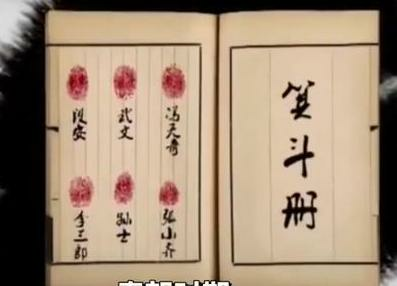 箕斗册
冯天奇
武文
段安
张小乔
孙士
李三郎